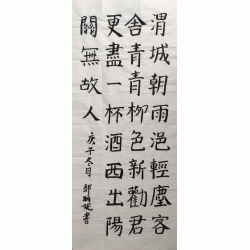 渭城朝雨浥輕塵客
舍青青柳色新勸君
更盡一杯酒西出陽
關無故人
庚子冬月